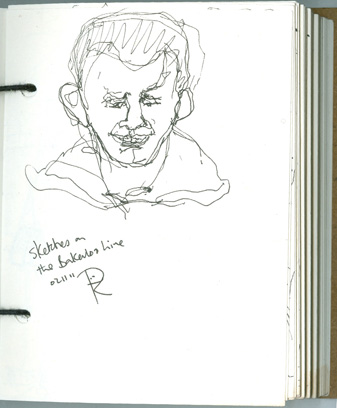 Sketches on
the Bakerloo Line
02 11 11
R